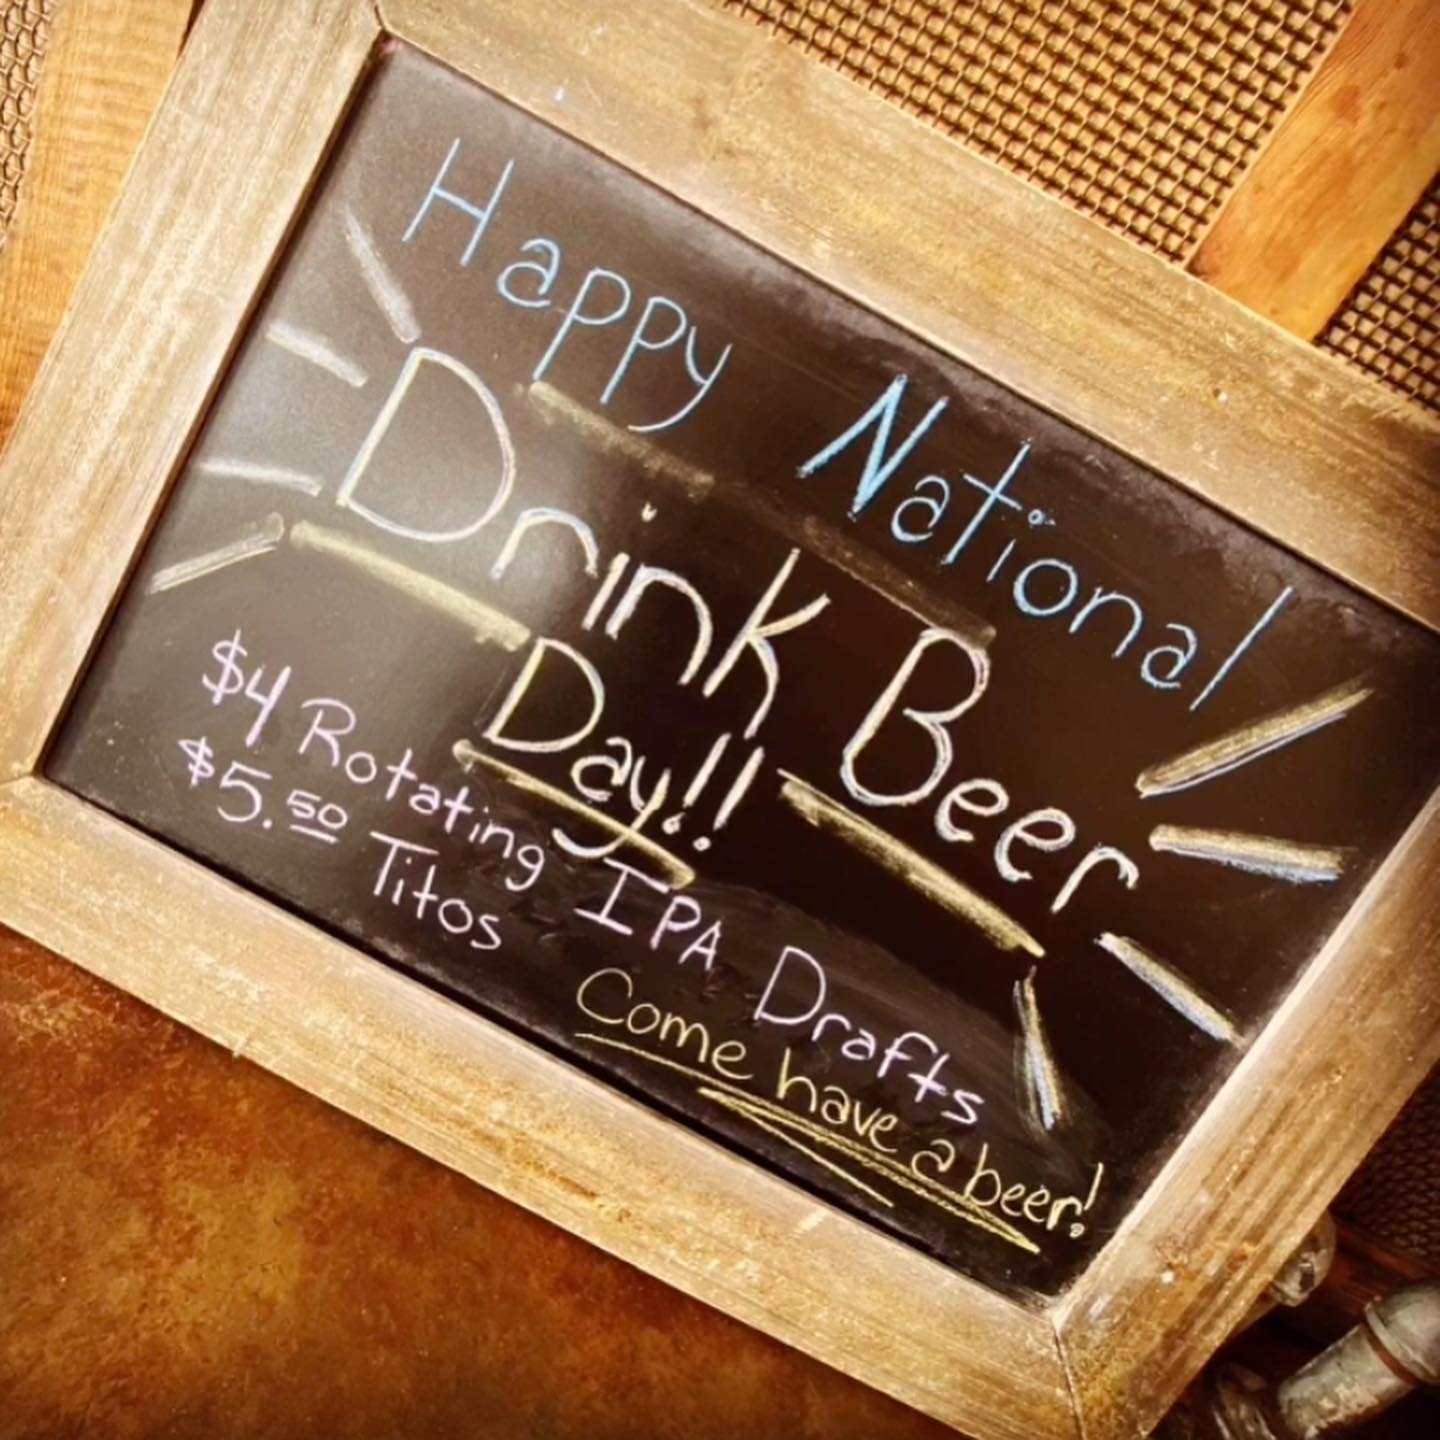 Happy National
Drink Beer
Day!!
$4 Rotating IPA Drafts
$5.50 Titos
Come have a beer!